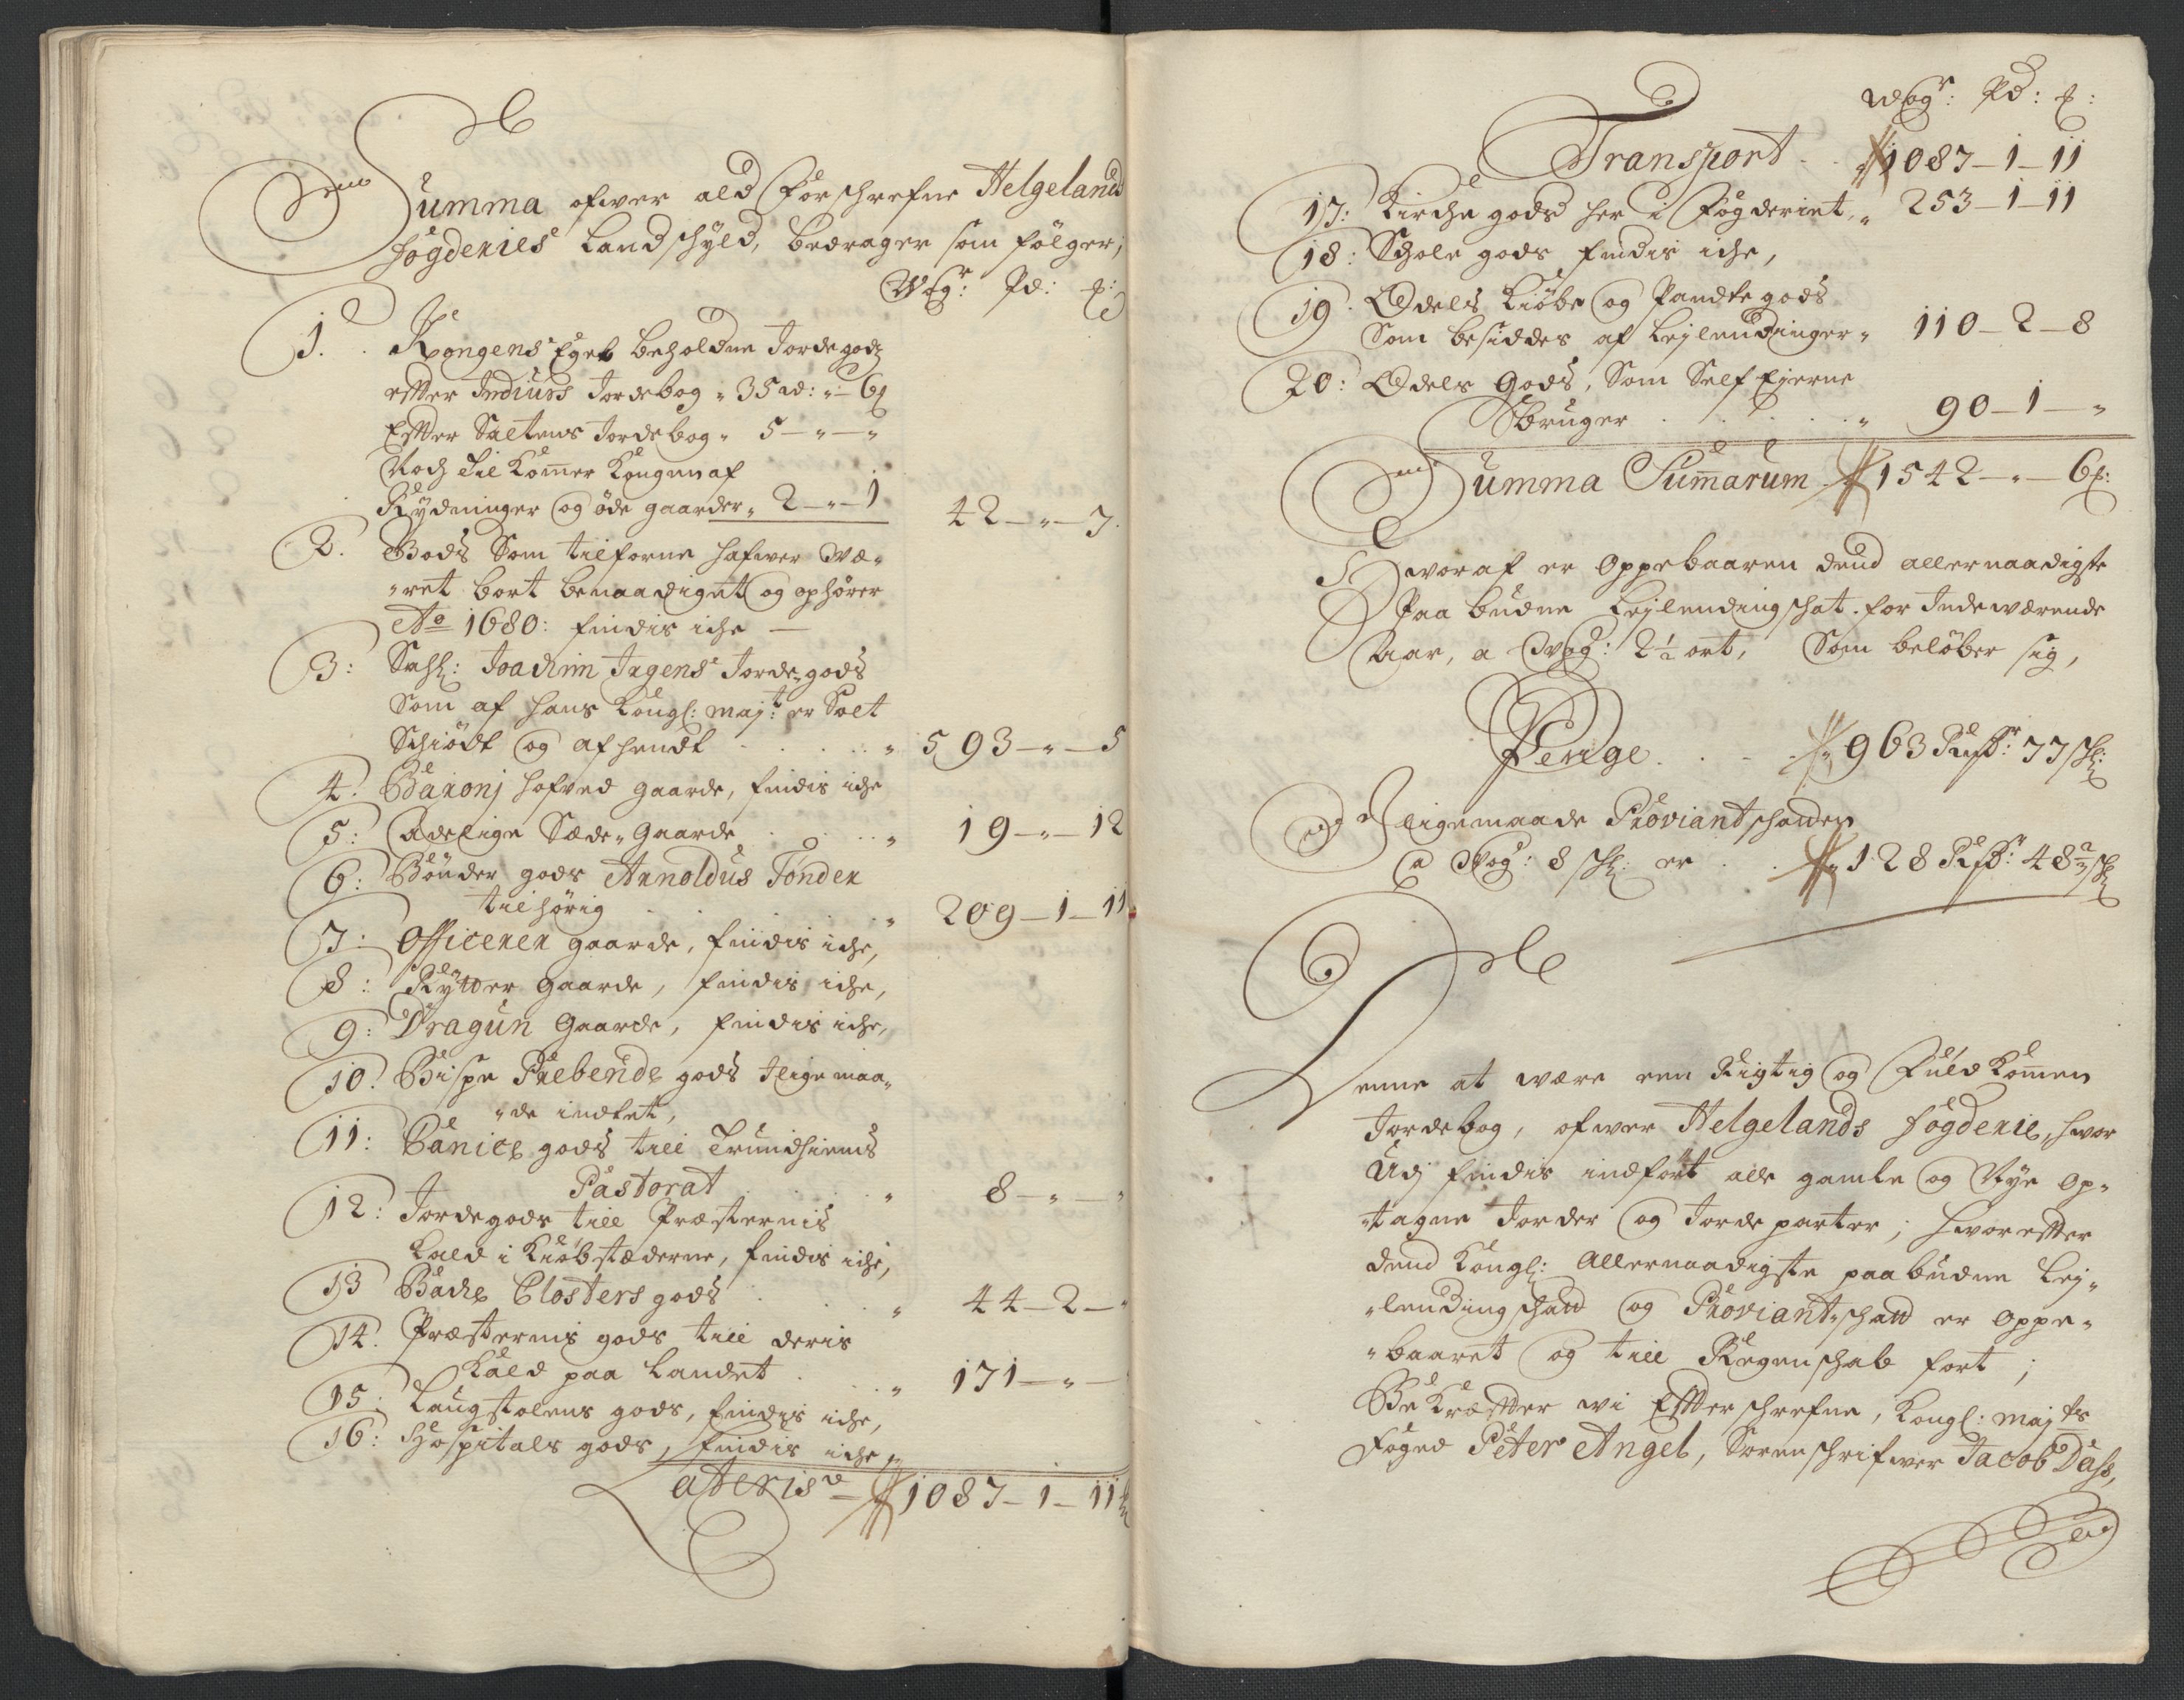 Summa ofwer ald Forschrefne Helgelands
fogderies Landschyld, bedrager som følger;
Wogr: Pd: ℔:
1. Kongens Eget beholdne Jordegodz
efter Indiurs Jordebog „ 35 W: „ - 6 ℔
Efter Saltens Jordebog „ 5 - „ - „
Noch til Kommer Kongen af
Rydninger og øde gaarder „ 2 - „ - 1
42 - „ - 7.
2. Gods Som tilforne hafwer wæ-
„ret bort benaadiget og ophører
Ao 1680: findis iche —
3: Sahl: Joachim Irgens Jorde-gods
Som af hans Kongl: mayt: er Solt
Schiødt og afhendt . . . „ 593 - „ - 5
4. Baronj hofved gaarde, findis iche
5: Adelige Sæde-Gaarde . . . „ 19 - „ - 12
6: Bønder gods Arnoldus Tønder
tilhørig . . . „ 209 - 1 - 11
7: Officerer gaarde, findis iche,
8: Rytter Gaarde, findis iche,
9: Dragun Gaarde, findis iche,
10. Bispe Prebende gods Ilige maa-
„de indtet,
11: Canice gods till Trundhiems
Pastorat . . . „ 8 - „ - „
12: Jordegods till Præsternis
Kald i Kiøbstæderne, findis iche,
13 Bache Closters gods . . . „ 44 - 2 - „
14. Præsternis gods till deris
Kald paa Landet . . . „ 171 - „ -
15. Laugstolens gods, findis iche,
16: Hospitals gods, findis iche,
Lateris - 1087 - 1 - 11 ℔
Wogr: Pd: ℔:
Transport . . 1087 - 1 - 11
17: Kirche gods her i Fogderiet, „ 253 - 1 - 11
18: Schole gods findis iche,
19. Odels Kiøbe og Pandte gods
Som besiddes af Leylendinger „ 110 - 2 - 8
20: Odels Gods, Som Self Eierne
Bruger . . . . „ 90 - 1 - „
Summa Sumarum 1542 - „ - 6 ℔:
Hworaf er Oppebaaren dend allernaadigste
Paa budne Leylending schat for Indewærende
Aar, a Wog: 2½ ort, Som beløber sig,
Penge . . . 963 Rdr: 77 sk:
Iligemaade Proviantschatten
a Wog: 8 sk: er . . 128 Rdr: 48 sk
Denne at være een Rigtig og Fuldkommen
Jordebog, ofwer Helgelands fogderie, hwor
Udj findis indført alle gamle og Nye op-
„tagne Jorder og Jorde parter; hworefter
dend Kongl: Allernaadigste paabudne Ley-
„lending schatt og Proviant-schatt er Oppe-
„baaret og till Regenschab fort;
Bekræfter wi Efterschrefne, Kongl: mayts
Foged Peter Angel, Sorenschrifwer Jacob Dass,